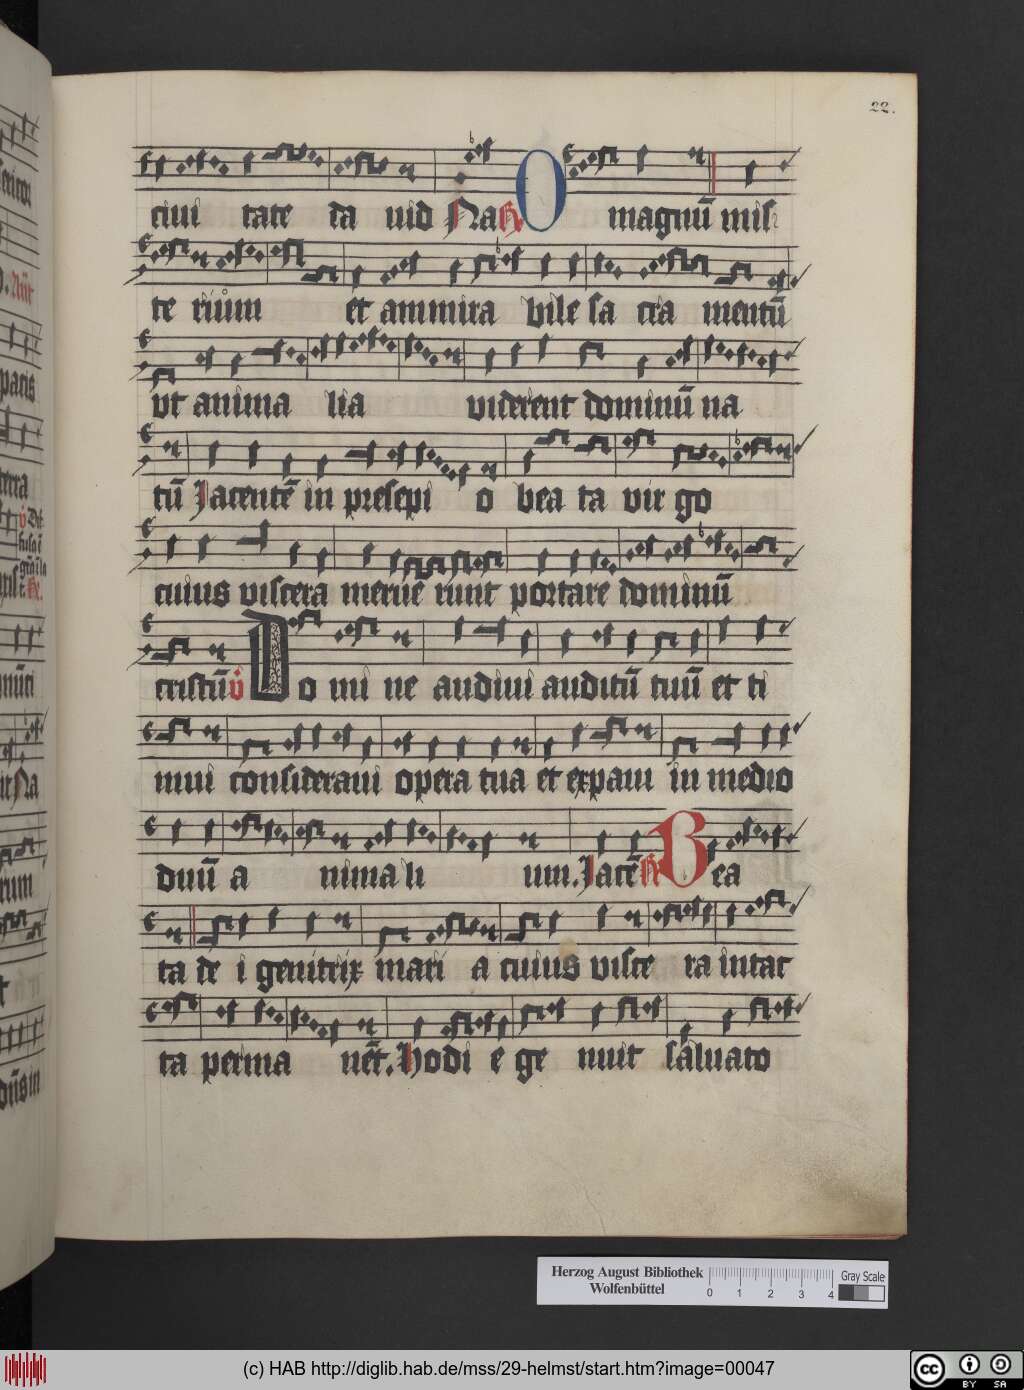 22.
ciui tate da uid Na R O magnū mis
te rium et ammira bile sa cra mentū
vt anima lia viderent dominū na
tū Jacentē in presepi o bea ta vir go
cuius viscera merue runt portare dominū
cristū v Do mi ne audiui auditū tuū et ti
mui consideraui opera tua et expaui in medio
duū a nimali um. Jacē R Bea
ta de i genitrix mari a cuius visce ra intac
ta perma nēt. Hodi e ge nuit saluato
Herzog August Bibliothek
Wolfenbüttel
0 1 2 3 4
Gray Scale
(c) HAB http://diglib.hab.de/mss/29-helmst/start.htm?image=00047
cc BY SA